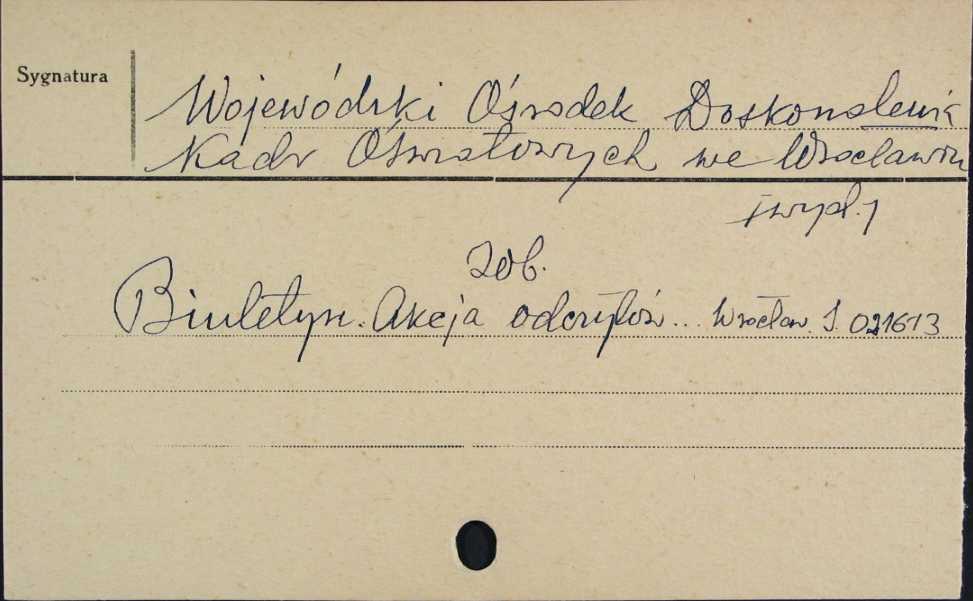 Sygnatura
Wojewódzki Ośrodek Doskonalenia
Kadr Oświatowych we Wrocławiu
[wyd.]
Zob.
Biuletyn. Akcja odczytów... Wrocław. S.